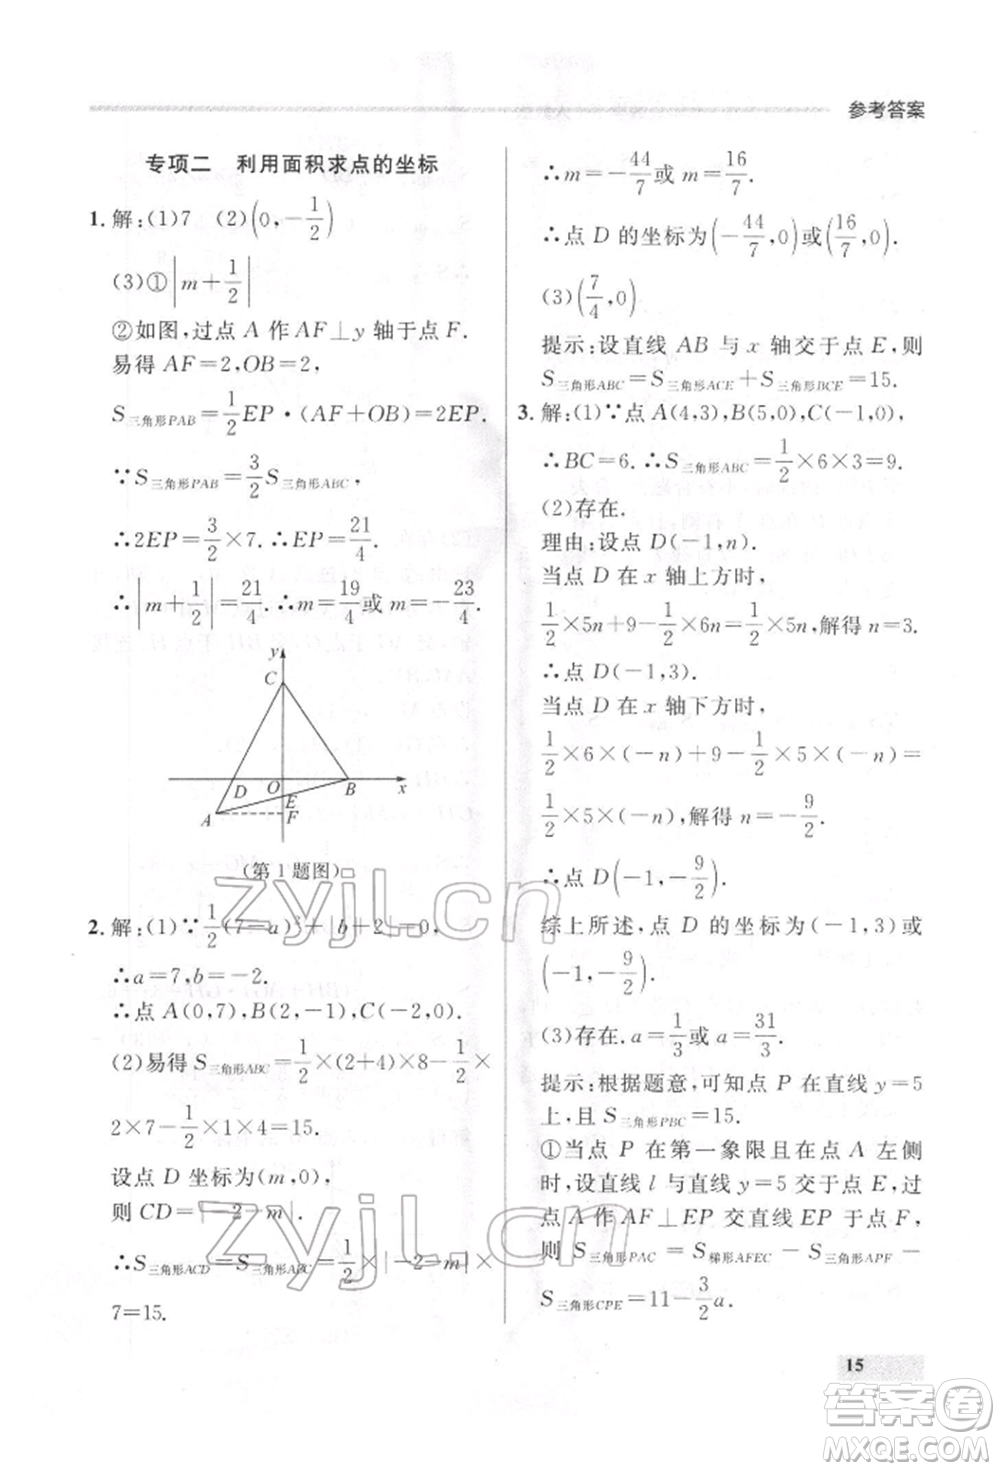 参考答案
专项二 利用面积求点的坐标
1. 解:(1)7 (2)(0,-1/2)
(3)①|m+1/2|
②如图,过点 A 作 AF⊥y 轴于点 F.
易得 AF=2,OB=2,
S三角形PAB=1/2EP·(AF+OB)=2EP.
∵S三角形PAB=3/2S三角形ABC,
∴2EP=3/2×7.∴EP=21/4.
∴|m+1/2|=21/4.∴m=19/4或 m=-23/4.
y
C
D O B x
E
A F
(第 1 题图)
2. 解:(1)∵1/2(7-a)²+|b+2|=0,
∴a=7,b=-2.
∴点 A(0,7),B(2,-1),C(-2,0).
(2)易得 S三角形ABC=1/2×(2+4)×8-1/2×
2×7-1/2×1×4=15.
设点 D 坐标为(m,0),
则 CD=|-2-m|.
∴S三角形ACD=S三角形ABC=1/2×|-2-m|×
7=15.
∴m=-44/7或 m=16/7.
∴点 D 的坐标为(-44/7,0)或(16/7,0).
(3)(7/4,0)
提示:设直线 AB 与 x 轴交于点 E,则
S三角形ABC=S三角形ACE+S三角形BCE=15.
3. 解:(1)∵点 A(4,3),B(5,0),C(-1,0),
∴BC=6.∴S三角形ABC=1/2×6×3=9.
(2)存在.
理由:设点 D(-1,n).
当点 D 在 x 轴上方时,
1/2×5n+9-1/2×6n=1/2×5n,解得 n=3.
∴点 D(-1,3).
当点 D 在 x 轴下方时,
1/2×6×(-n)+9-1/2×5×(-n)=
1/2×5×(-n),解得 n=-9/2.
∴点 D(-1,-9/2).
综上所述,点 D 的坐标为(-1,3)或
(-1,-9/2).
(3)存在.a=1/3或 a=31/3.
提示:根据题意,可知点 P 在直线 y=5
上,且 S三角形PBC=15.
①当点 P 在第一象限且在点 A 左侧
时,设直线 l 与直线 y=5 交于点 E,过
点 A 作 AF⊥EP 交直线 EP 于点 F,
则 S三角形PAC=S梯形AFEC-S三角形APF-
S三角形CPE=11-3/2a.
15
zyjl.cn
zyjl.cn
答案圈
MXQE.COM